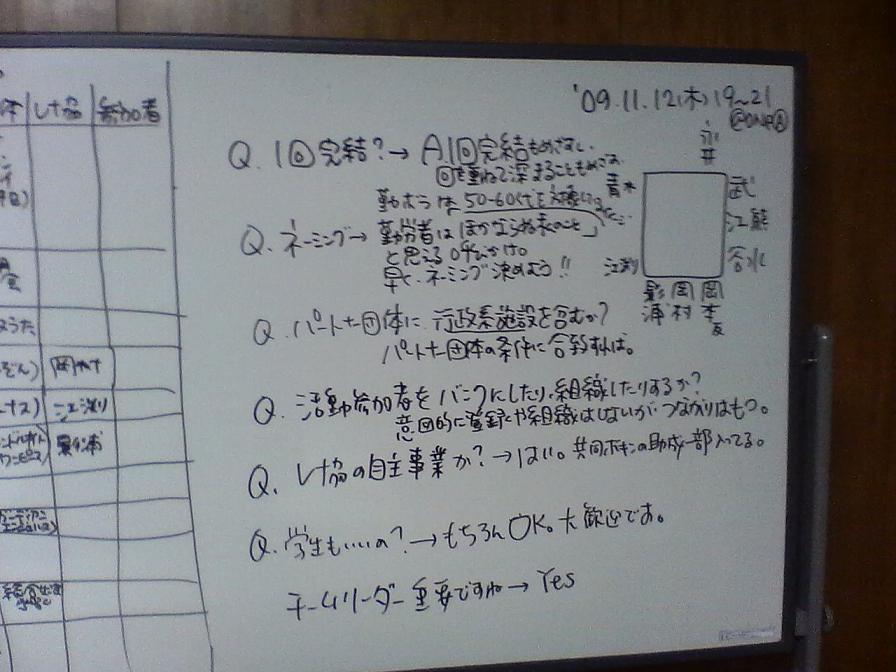 体 レナ協 参加者
岡村
江渕
影浦
'09.11.12(木)19~21
永井
青木
武
江熊
谷水
江渕
影浦 岡村 岡
Q. 1回完結?→ A.1回完結もめざすし、
回を重ねて深まることもめざす。
勤ろうは 50-60代を対象に
Q. ネーミング→ 勤労者は ほかならぬ私のこと」
と思える呼びかけの
早く、ネーミング決めよう!!
Q. パートナー団体に 行政系施設を含むか?
パートナー団体の条件に合致すれば。
Q. 活動参加者を バンクにしたり、組織したりするか?
意図的に登録とや組織はしないが つながりはもつ。
Q. レナ協の自主事業か?→はい。共同ボキンの助成一部入ってる。
Q. 学生もいいの?→もちろんOK。大歓迎です。
チームリーダー重要ですね→Yes